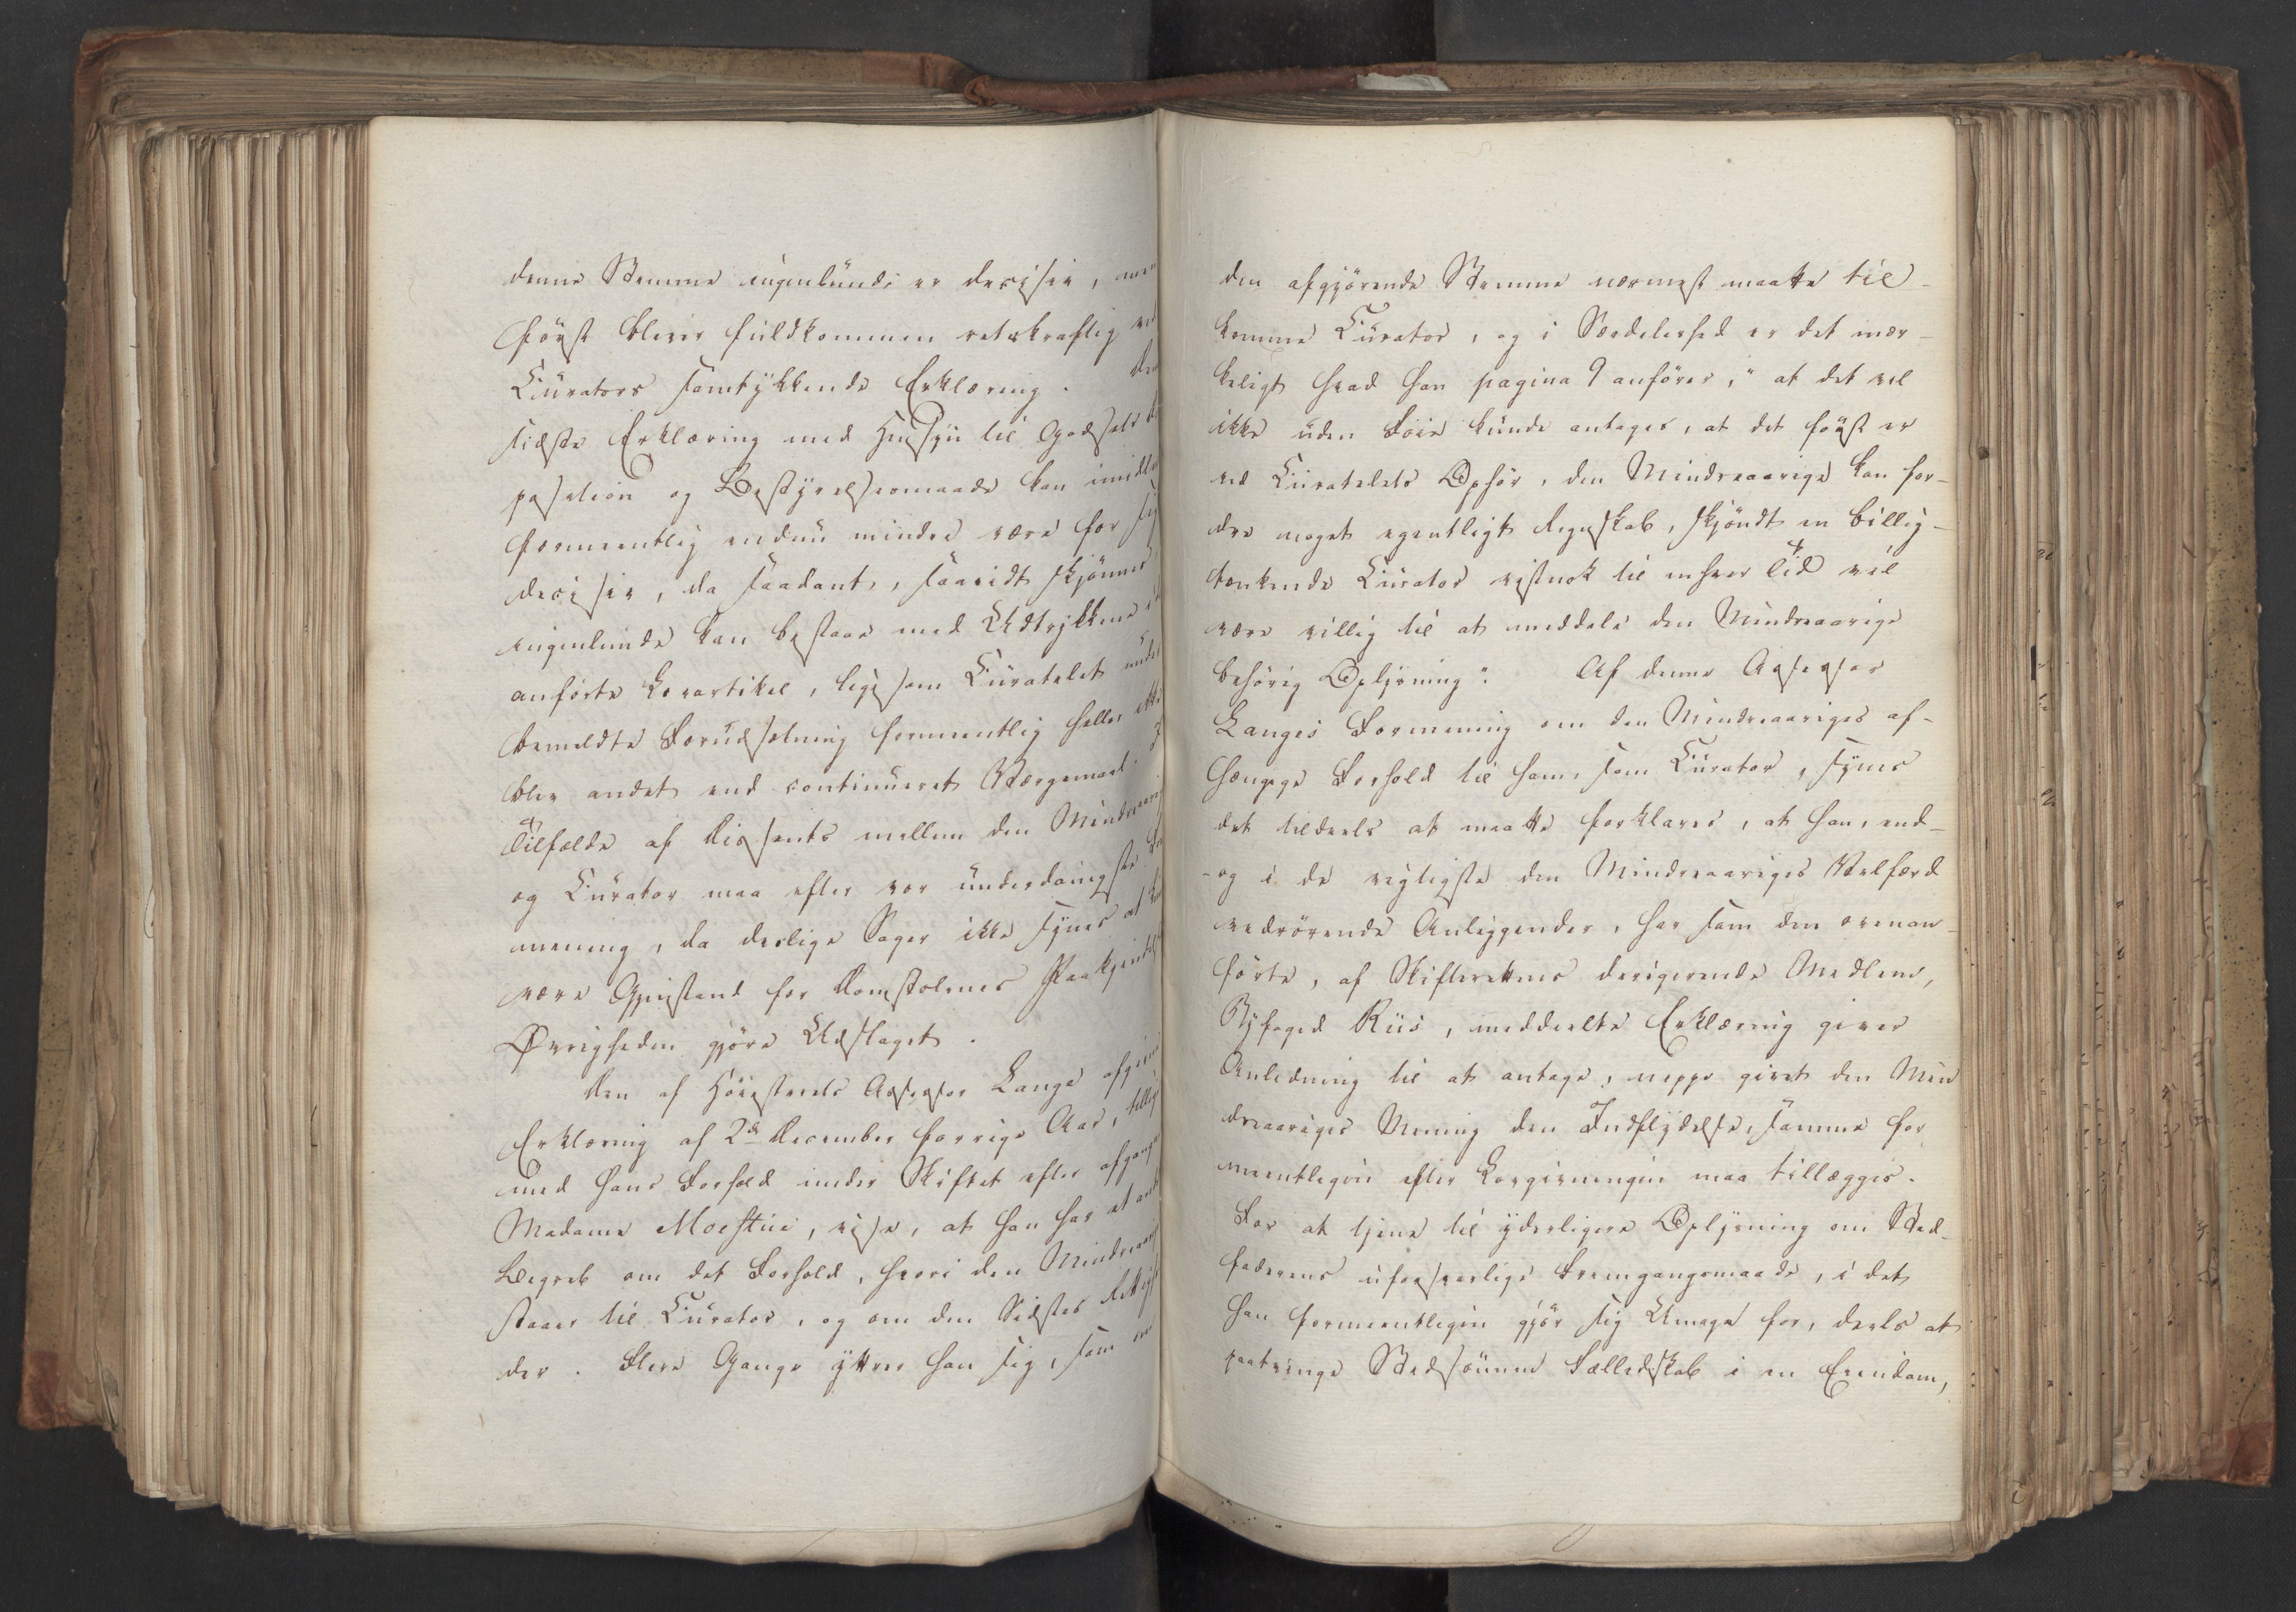 denne Stemme ingenlunde er decisiv, men
først bliver fuldkommen retskraftig ved
Curators samtykkende Erklæring. Den
sidste Erklæring med Hensyn til Godsets
position og Bestyrelsesmaade kan imidler
formeentlig endnu mindre være for sig
decisiv, da saadant, saavidt skjønnes
ingenlunde kan bestaae med Udtrykkene i
anførte Lovartikel, ligesom Curatelet under
bemeldte Forudsætning formeentlig heller ikke
blev andet end continueret Værgemaal. I
Tilfælde af Dissents mellem den Mindreaarig
og Curator maa efter vor underdanigste For
mening, da deslige Sager ikke synes at
være Gjenstand for Domstolenes Paakjendelse
Øvrigheden gjøre Udslaget.
Den af Høiesterets Assessor Lange afgivne
Erklæring af 2de December forrige Aar, tillige
med hans Forhold under Skiftet efter afgangne
Madame Moestue, vise, at han har et andet
Begreb om det Forhold, hvori den Mindreaarig
staaer til Curator, og om den Sidstes Rettighe
der. Flere Gange yttrer han sig, som om
den afgjørende Stemme nærmest maatte til-
komme Curator, og i Særdeleshed er det mær-
keligt hvad han pagina 9 anfører, "at det vel
ikke uden Føie kunde antages, at det først er
ved Curatelets Ophør, den Mindreaarige kan for-
dre noget egentligt Regnskab, skjøndt en billig-
tænkende Curator vistnok til enhver Tid vil
være villig til at meddele den Mindreaarige
behørig Oplysning". Af denne Assessor
Langes Formening om den Mindreaariges af-
hængige Forhold til ham, som Curator, synes
det tildeels at maatte forklares, at han, end-
-og i de vigtigste den Mindreaariges Velfærd
vedrørende Anliggender, har som den ovenan-
førte, af Skifterettens dirigerende Medlem,
Byfoged Riis, meddeelte Erklæring giver
Anledning til at antage, neppe givet den Min
dreaariges Mening den Indflydelse, samme for
meentligen efter Lovgivningen maa tillægges.
For at tjene til yderligere Oplysning om Sted-
faderens uforsvarlige Fremgangsmaade, i det
han formeentligen gjør sig Umage for, deels at
paatvinge Stedsønnen Fælledskab i en Eiendom,